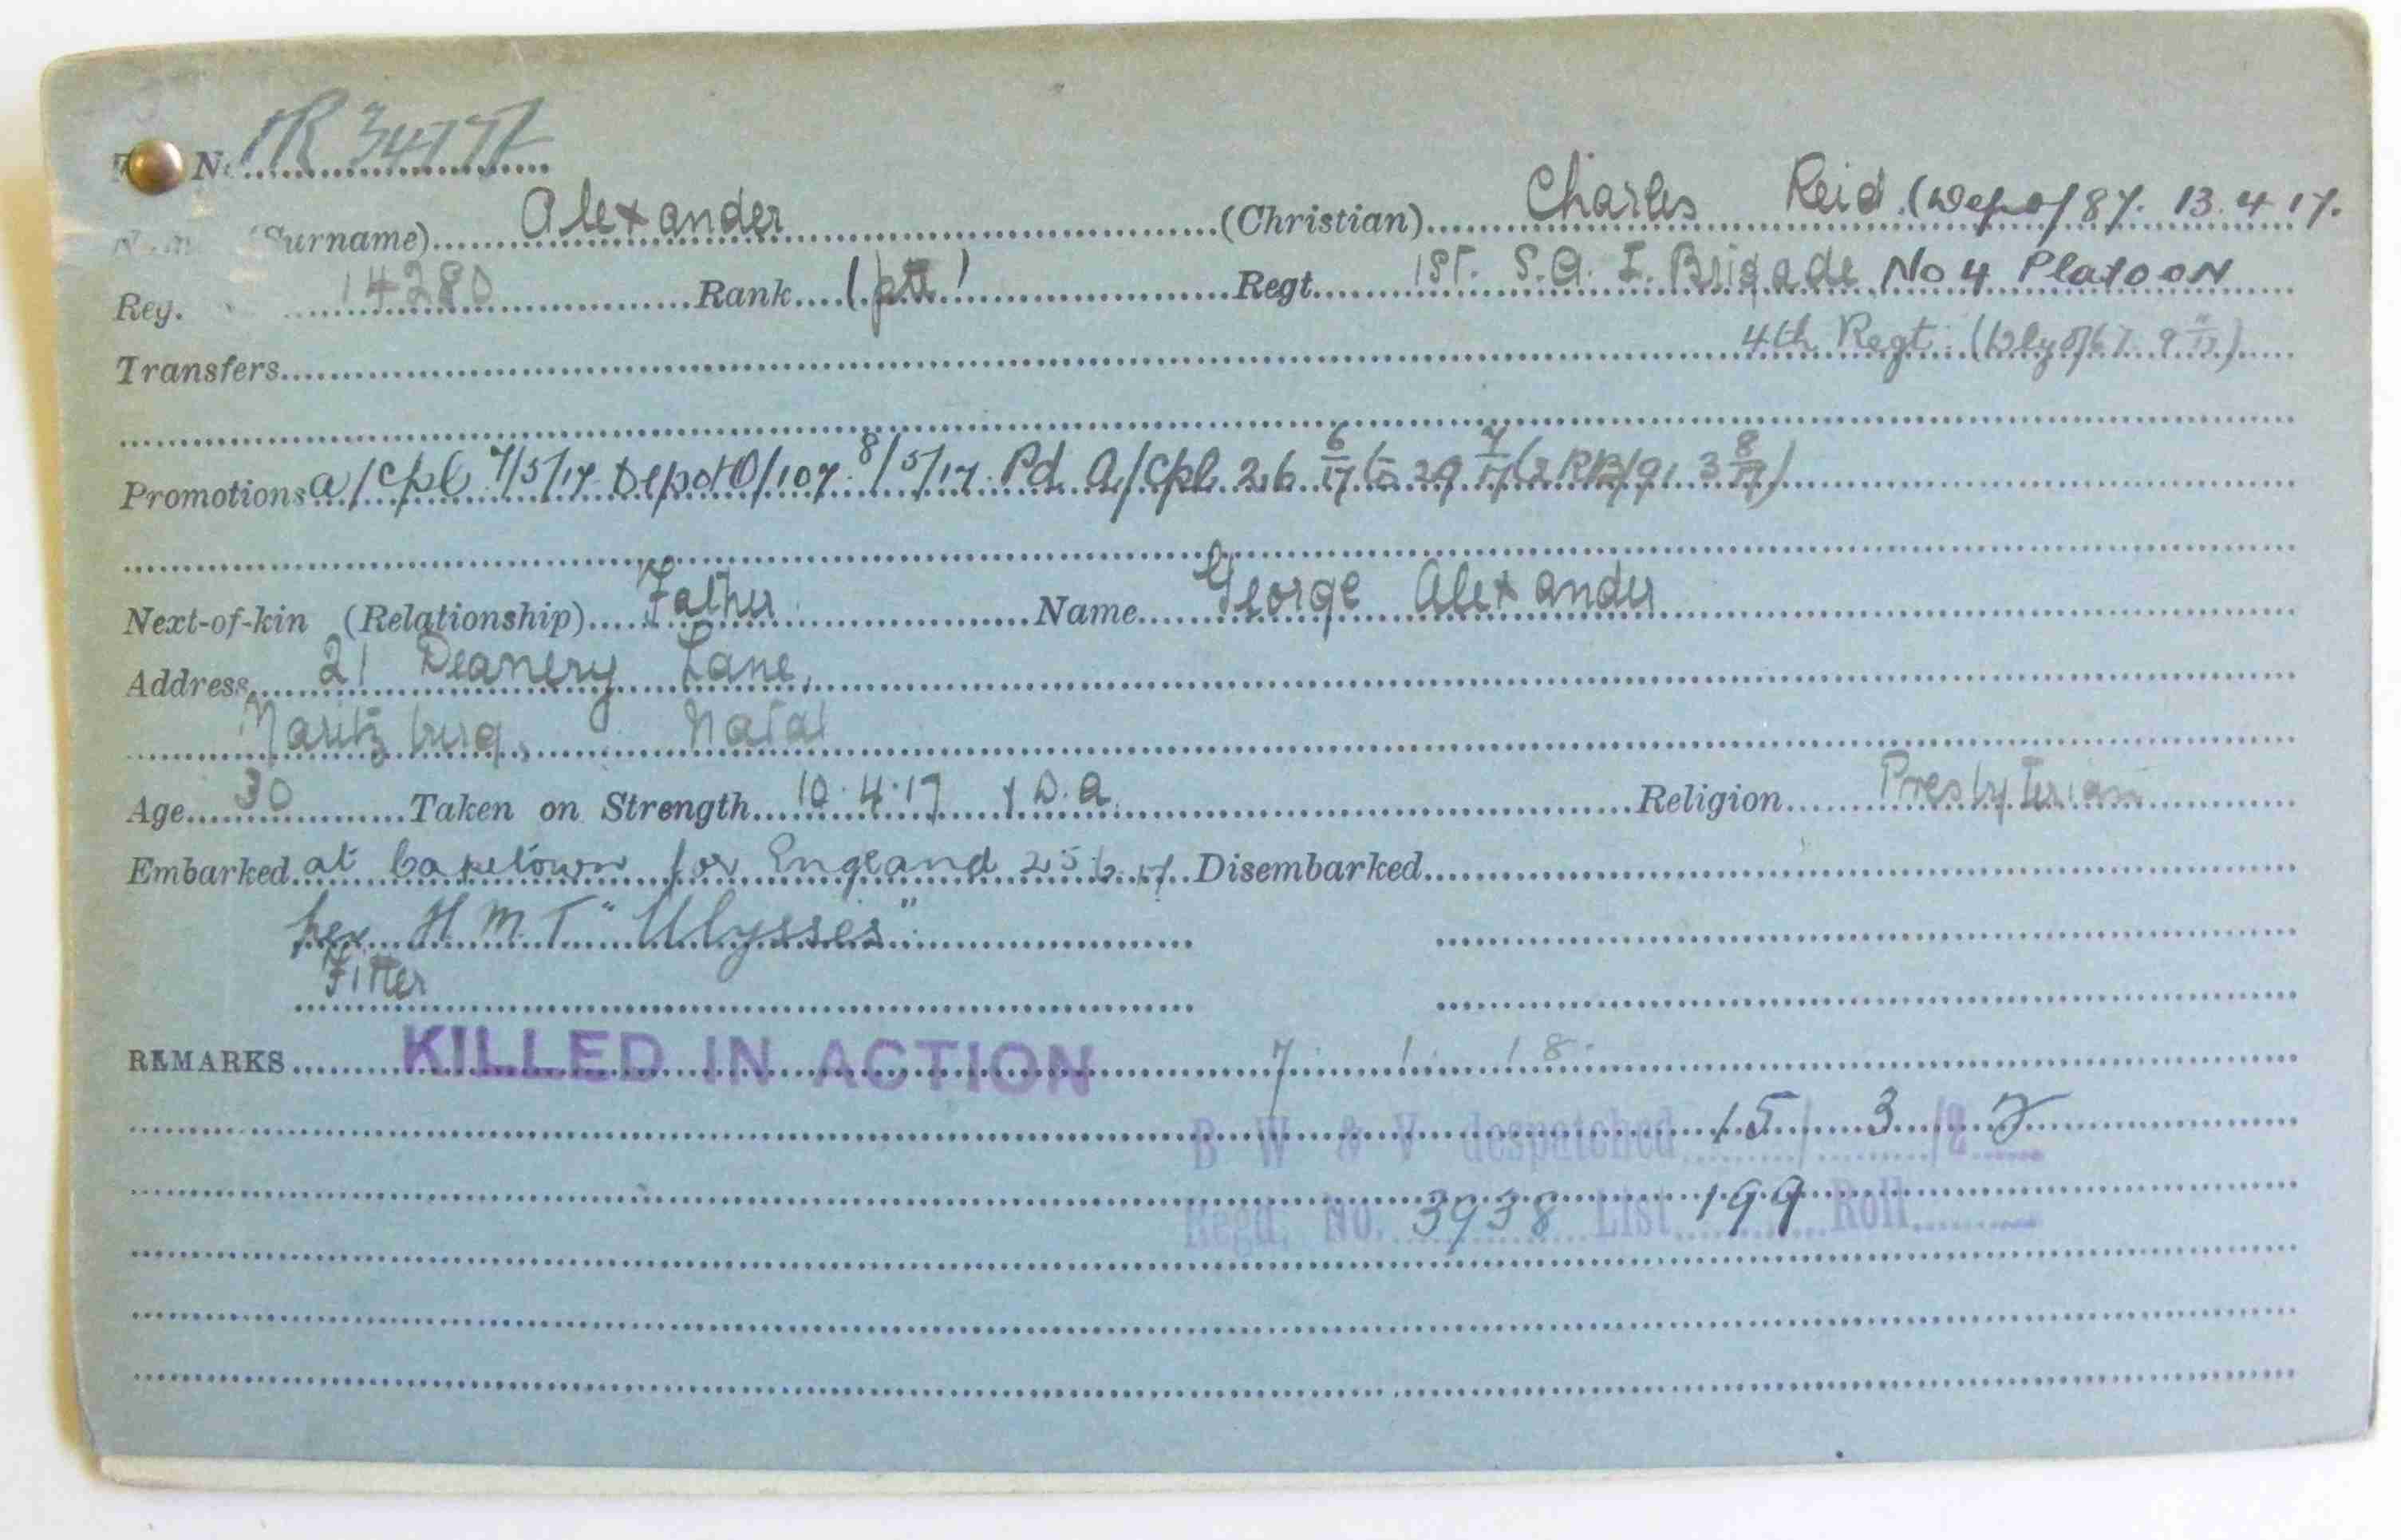 No. 1R 34177
(Surname) Alexander (Christian) Charles Reid. (Dep of 87. 13.4.17.
Reg. 14280 Rank (pte) Regt. 1ST. S.A.I. Brigade No 4 Platoon
Transfers 4th Regt.
Promotions a/Cpl 7/5/17 Depot O/107. 8/5/17. Pd. A/Cpl. 26 6/17 to 29 7/17 (2 RB/91 3 8/17)
Next-of-kin (Relationship) Father Name George Alexander
Address 21 Deanery Lane,
Maritzburg, Natal
Age 30 Taken on Strength 10.4.17 Religion Presbyterian
Embarked at Capetown for England 25.6.17. Disembarked
per H.M.T. "Ulysses".
Fitter
REMARKS KILLED IN ACTION 7. 1. 18.
B W & V despatched 15/3/2
Regd. No. 3938 List 199 Roll